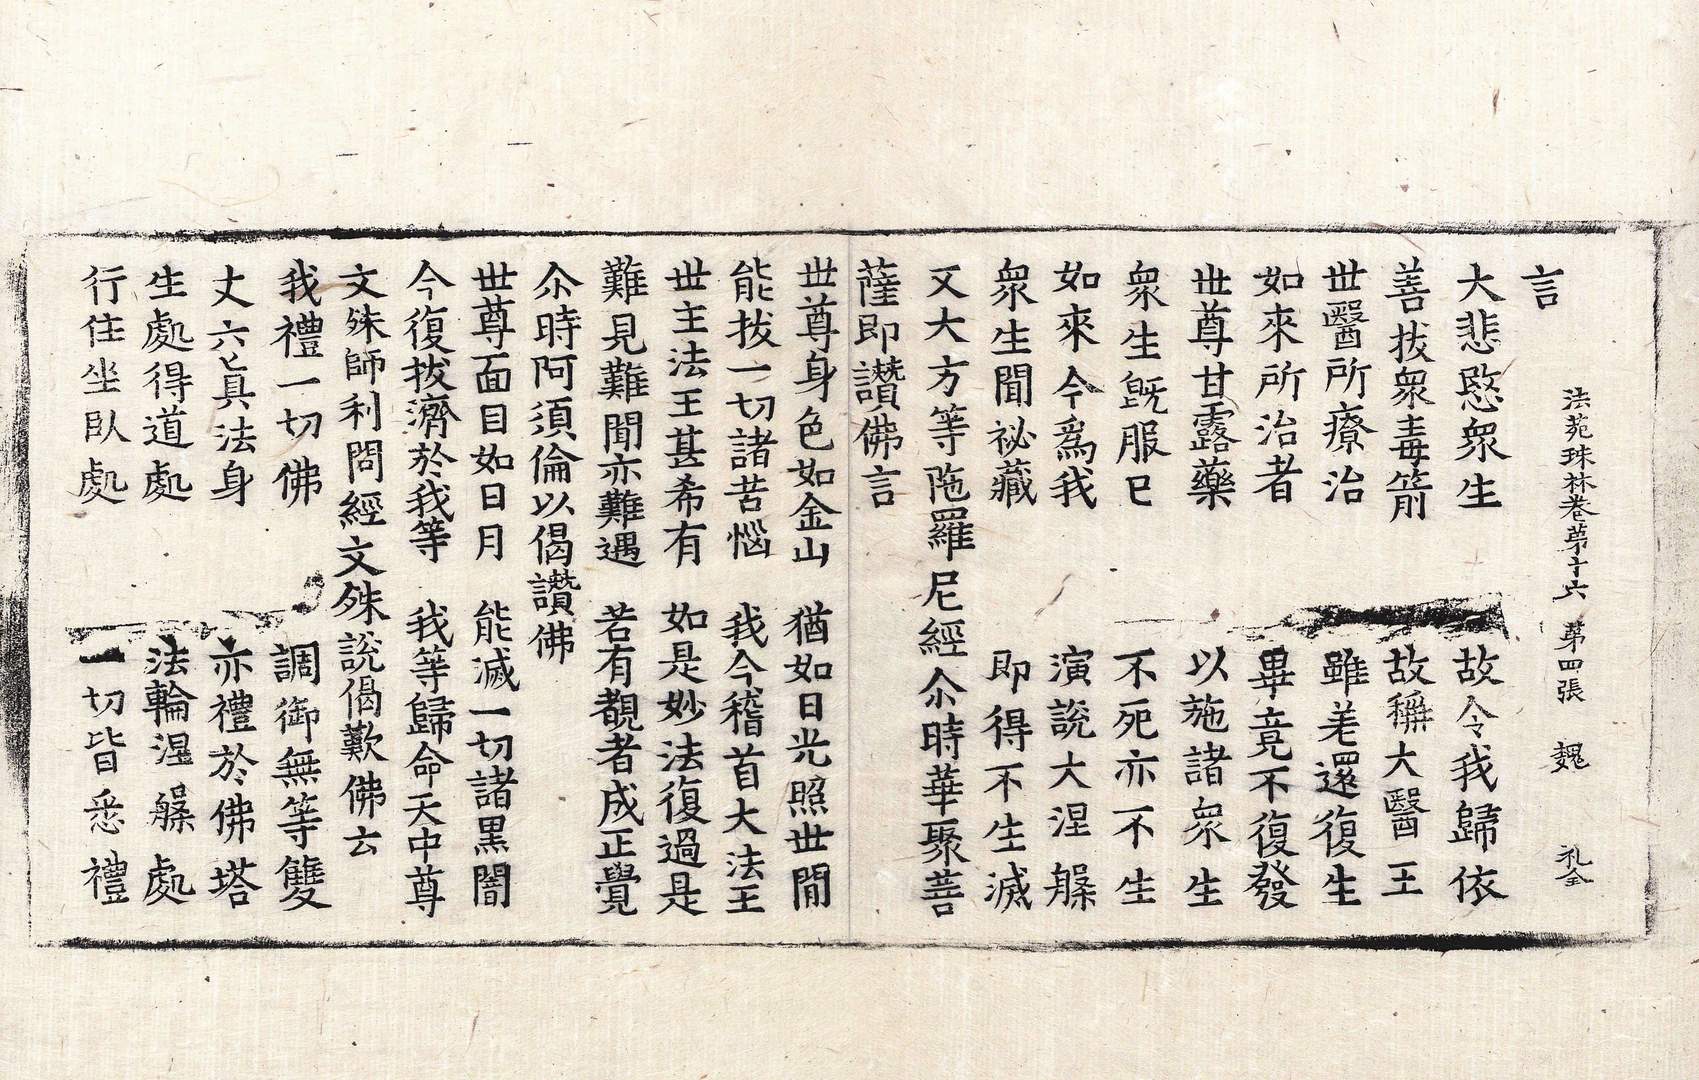 法苑珠林卷第十六　第四張　魏　礼全
言
大悲愍衆生　故令我歸依
善拔衆毒箭　故稱大醫王
世醫所療治　雖差還復生
如來所治者　畢竟不復發
世尊甘露藥　以施諸衆生
衆生旣服已　不死亦不生
如來今爲我　演說大涅槃
衆生聞祕藏　即得不生滅
又大方等陁羅尼經尒時華聚菩
薩即讚佛言
世尊身色如金山　猶如日光照世間
能拔一切諸苦惱　我今稽首大法王
世主法王甚希有　如是妙法復過是
難見難聞亦難遇　若有覩者成正覺
尒時阿須倫以偈讚佛
世尊面目如日月　能滅一切諸黑闇
今復拔濟於我等　我等歸命天中尊
文殊師利問經文殊說偈歎佛云
我禮一切佛　調御無等雙
丈六真法身　亦禮於佛塔
生處得道處　法輪涅槃處
行住坐臥處　一切皆悉禮